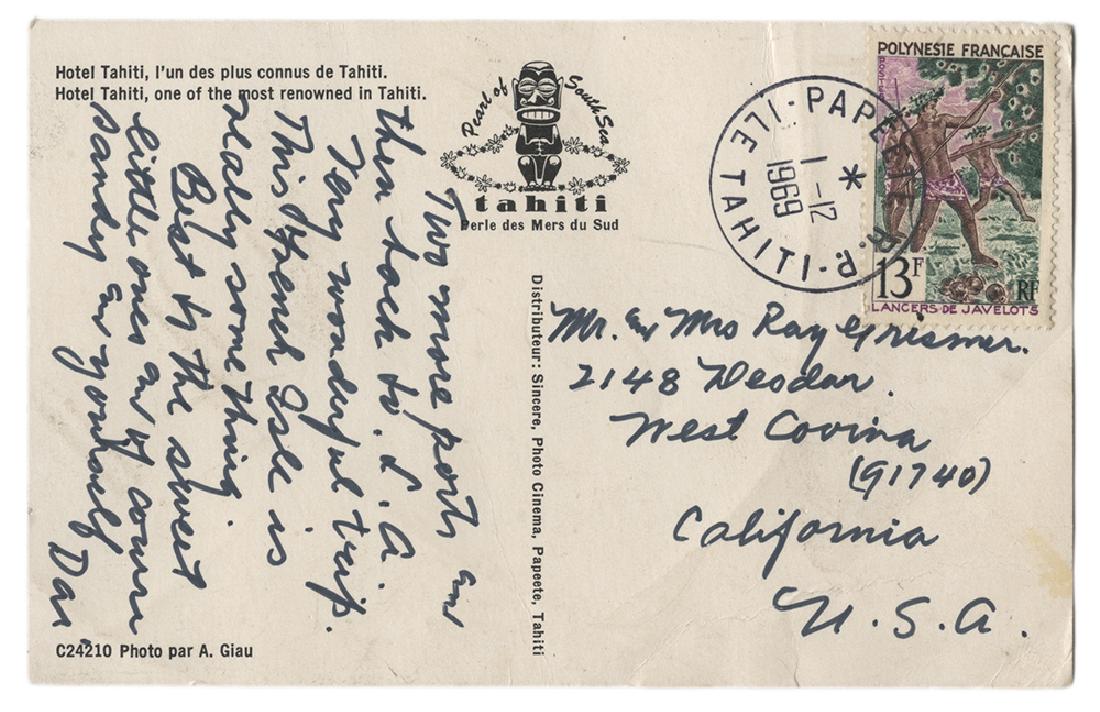 Hotel Tahiti, l'un des plus connus de Tahiti.
Hotel Tahiti, one of the most renowned in Tahiti.
Pearl of South Sea
tahiti
Perle des Mers du Sud
Two more ports and
then back to L. A.
Very wonderful trip.
This French Isle is
really something.
Best to the sweet
little ones an of course
Sandy an yourself,
Dan
C24210 Photo par A. Giau
Distributeur: Sincere, Photo Cinema, Papeete, Tahiti
PAPEETE R.P.
*
1-12
1969
ILE TAHITI
POLYNESIE FRANÇAISE
POSTES
13F
RF
LANCERS DE JAVELOTS
Mr. & Mrs Ray Grismer.
2148 Deodar.
West Covina
(91740)
California
U.S.A.